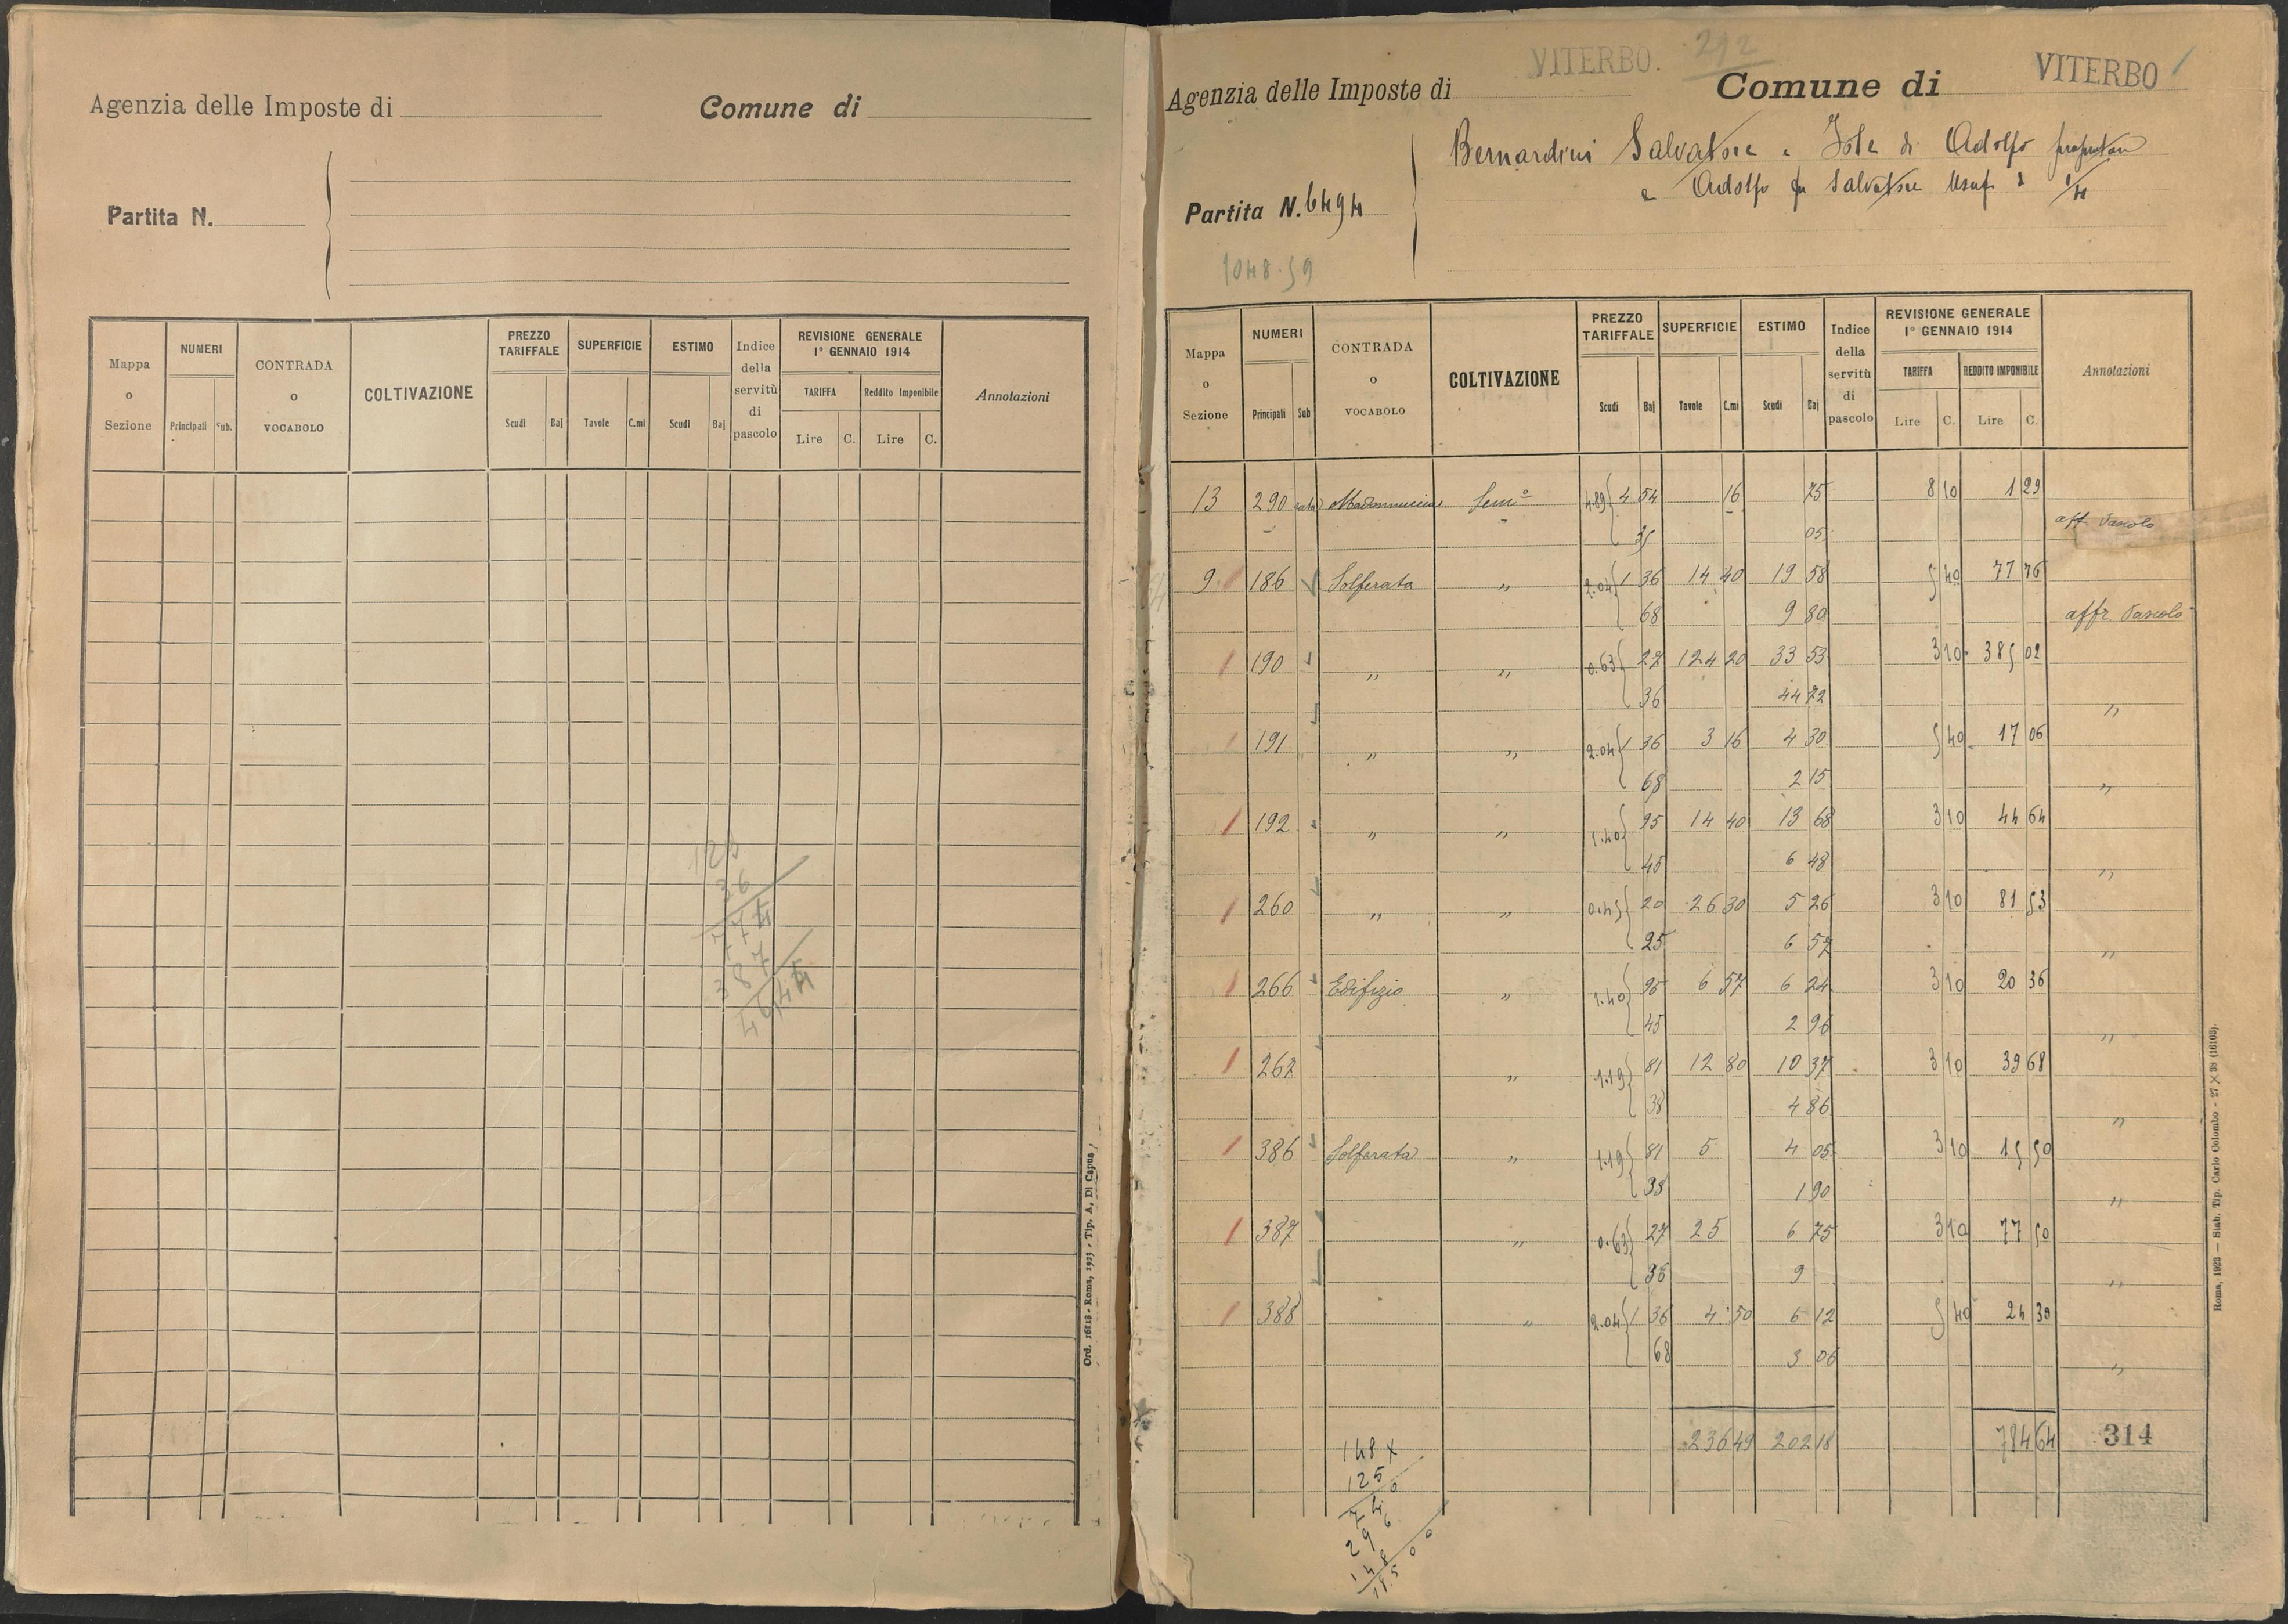 Agenzia delle Imposte di
Comune di
Partita N.
Mappa o Sezione
NUMERI
Principali
Sub.
CONTRADA o VOCABOLO
COLTIVAZIONE
PREZZO TARIFFALE
Scudi Baj
SUPERFICIE
Tavole C.mi
ESTIMO
Scudi Baj
Indice della servitù di pascolo
REVISIONE GENERALE
1° GENNAIO 1914
TARIFFA
Lire C.
Reddito Imponibile
Lire C.
Annotazioni
36
387
Ord. 16118 - Roma, 1923 - Tip. A. Di Capua
292
Agenzia delle Imposte di VITERBO.
Comune di VITERBO
Partita N. 6494
Bernardini Salvatore e Iole di Adolfo
e Adolfo fu Salvatore Usuf. di 1/4
1048.59
Mappa o Sezione
NUMERI
Principali Sub
CONTRADA o VOCABOLO
COLTIVAZIONE
PREZZO TARIFFALE
Scudi Baj
SUPERFICIE
Tavole C.mi
ESTIMO
Scudi Baj
Indice della servitù di pascolo
REVISIONE GENERALE
1° GENNAIO 1914
TARIFFA
Lire C.
REDDITO IMPONIBILE
Lire C.
Annotazioni
13 290 Sem° 4.89 4 54 16 75 8 10 1 29
35 05 aff. Pascolo
9 186 Solferata " 2.04 1 36 14 40 19 58 5 40 77 76
68 9 80 affr. Pascolo
190 " " 0.63 27 124 20 33 53 3 10 385 02
36 44 72 "
191 " " 2.04 1 36 3 16 4 30 5 40 17 06
68 2 15 "
192 " " 1.40 95 14 40 13 68 3 10 44 64
45 6 48 "
260 " " 0.45 20 26 30 5 26 3 10 81 53
25 6 57 "
266 Edifizio " 1.40 95 6 57 6 24 3 10 20 36
45 2 96 "
267 " 1.19 81 12 80 10 37 3 10 39 68
38 4 86 "
386 Solferata " 1.19 81 5 4 05 3 10 15 50
38 1 90 "
387 " 0.63 27 25 6 75 3 10 77 50
36 9 "
388 " 2.04 1 36 4 50 6 12 5 40 24 30
68 3 06 "
236 49 202 18 784 64
314
148 x
125
Roma, 1923 — Stab. Tip. Carlo Colombo - 27 X 38 (16103).